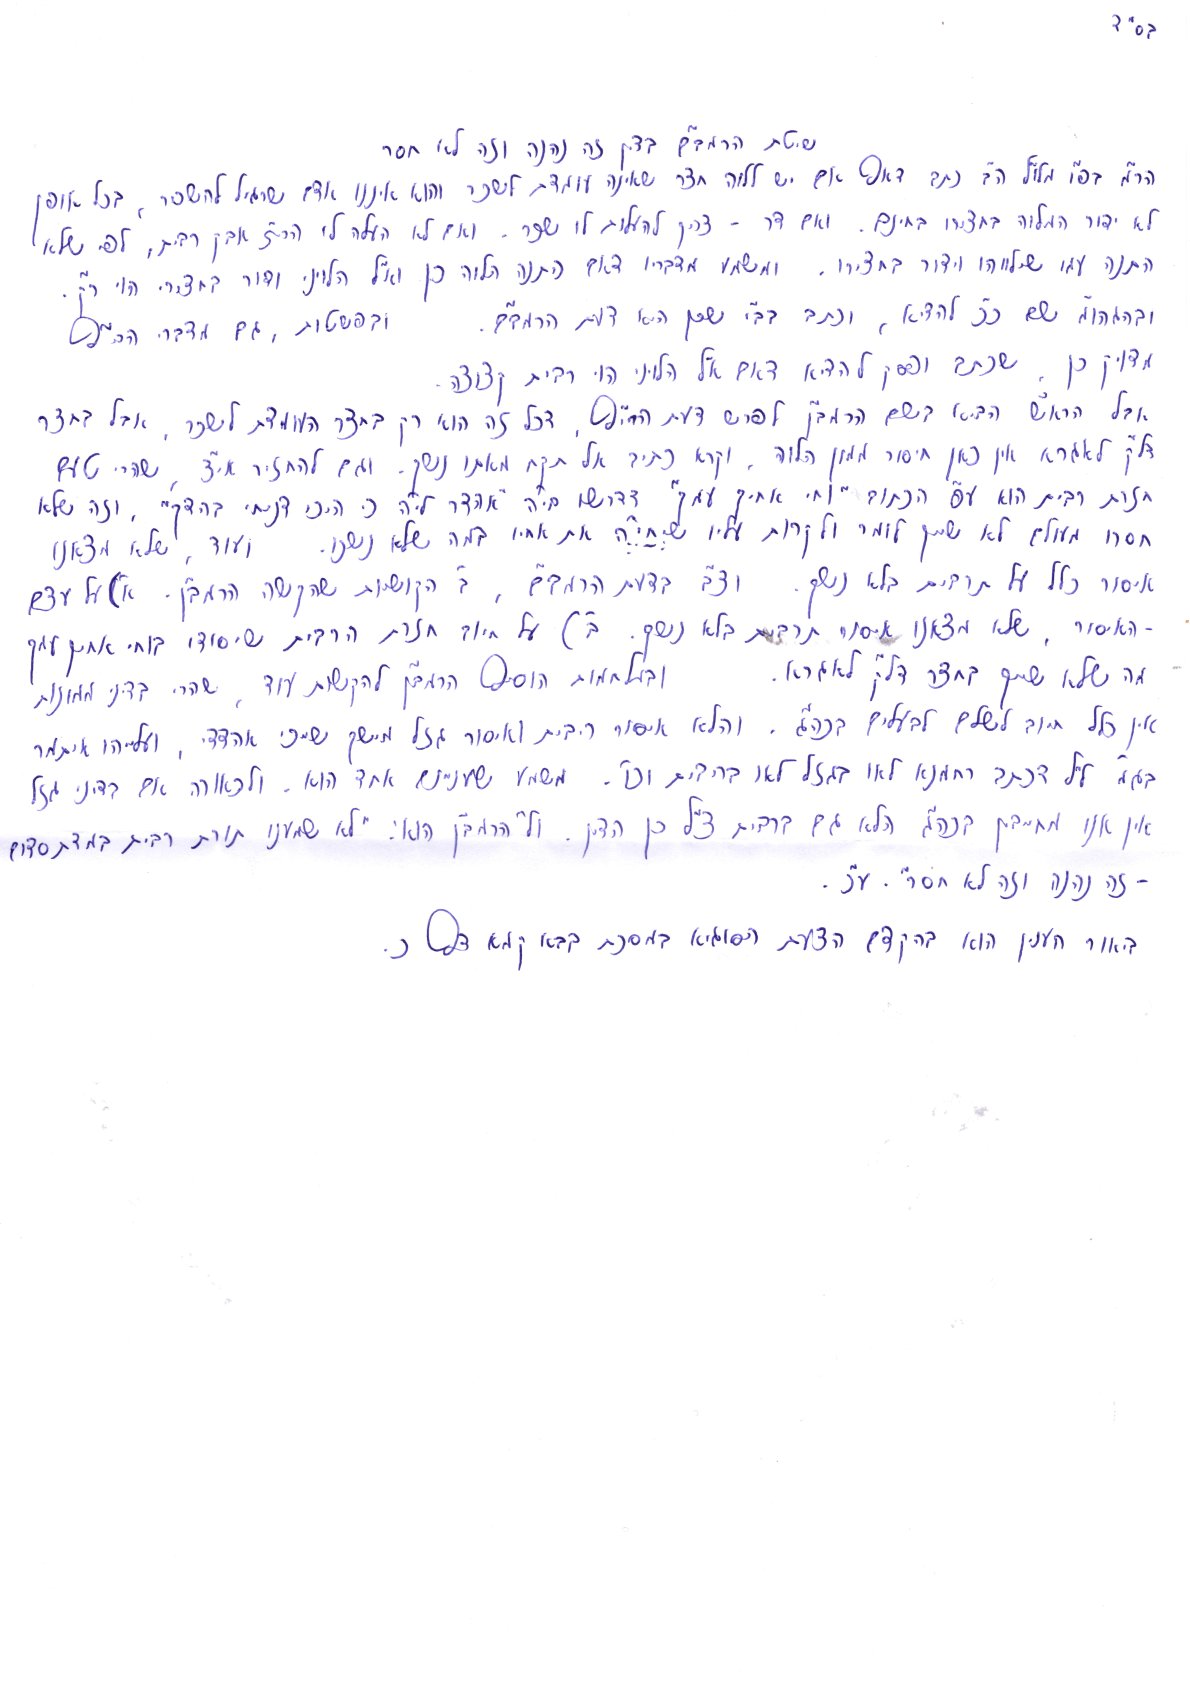 בס"ד
שיטת הרמב"ם בדין זה נהנה וזה לא חסר
הר"מ בפ"ו מלו"ל ה"ב כתב דאף אם יש ללוה חצר שאינה עומדת לשכר והוא איננו אדם שרגיל להשכיר, בכל אופן
לא ידור המלוה בחצירו בחינם. ואם דר - צריך להעלות לו שכר. ואם לא העלה לו הר"ז אבק רבית, לפי שלא
התנה עמו שילווהו וידור בחצירו. ומשמע מדבריו דאם התנה הלוה כן וא"ל הלויני ודור בחצירי הוי ר"ק.
ובהגהומ"י שם כ"כ להדיא, וכתב בב"י שכן היא דעת הרמב"ם. ובפשטות, גם מדברי הרי"ף
מדויק כן, שכתב ופסק להדיא דאם א"ל הלויני הוי רבית קצוצה.
אבל הרא"ש הביא בשם הרמב"ן לפרש דעת הרי"ף, דכל זה הוא רק בחצר העומדת לשכר, אבל בחצר
דל"ק לאגרא אין כאן חיסור ממון הלוה, וקרא כתיב אל תקח מאתו נשך. וגם להחזיר אי"צ, שהרי טעם
חזרת רבית הוא ע"פ הכתוב "וחי אחיך עמך" דדרשו חז"ל "אהדר ליה כי היכי דניחי בהדך", וזה שלא
חסרו מעולם לא שייך לומר ולקרות עליו שיחי'ה את אחיו במה שלא נשכו. ועוד, שלא מצאנו
איסור כלל על תרבית בלא נשך. וצ"ב בדעת הרמב"ם, ב' הקושיות שהקשה הרמב"ן. א) על עצם
-האיסור, שלא מצאנו איסור תרבית בלא נשך. ב') על חיוב חזרת הרבית שיסודו בוחי אחיך עמך
מה שלא שייך בחצר דל"ק לאגרא. ובמלחמות הוסיף הרמב"ן להקשות עוד, שהרי בדיני ממונות
אין כלל חיוב לשלם לבעלים בכה"ג. והלא איסור ריבית ואיסור גזל מישך שייכי אהדדי, ועלייהו איתמר
בגמ' ל"ל דכתב רחמנא לאו בגזל לאו בריבית וכו'. משמע שעניינם אחד הוא. ולכאורה אם בדיני גזל
אין אנו מחייבין בכה"ג הלא גם ברבית צ"ל כן הדין. ול' הרמב"ן הוא: "לא שמענו תורת רבית במדת סדום
- זה נהנה וזה לא חסר". ע"כ.
ביאור הענין הוא בהקדם הצעת הסוגיא במסכת בבא קמא דף כ.